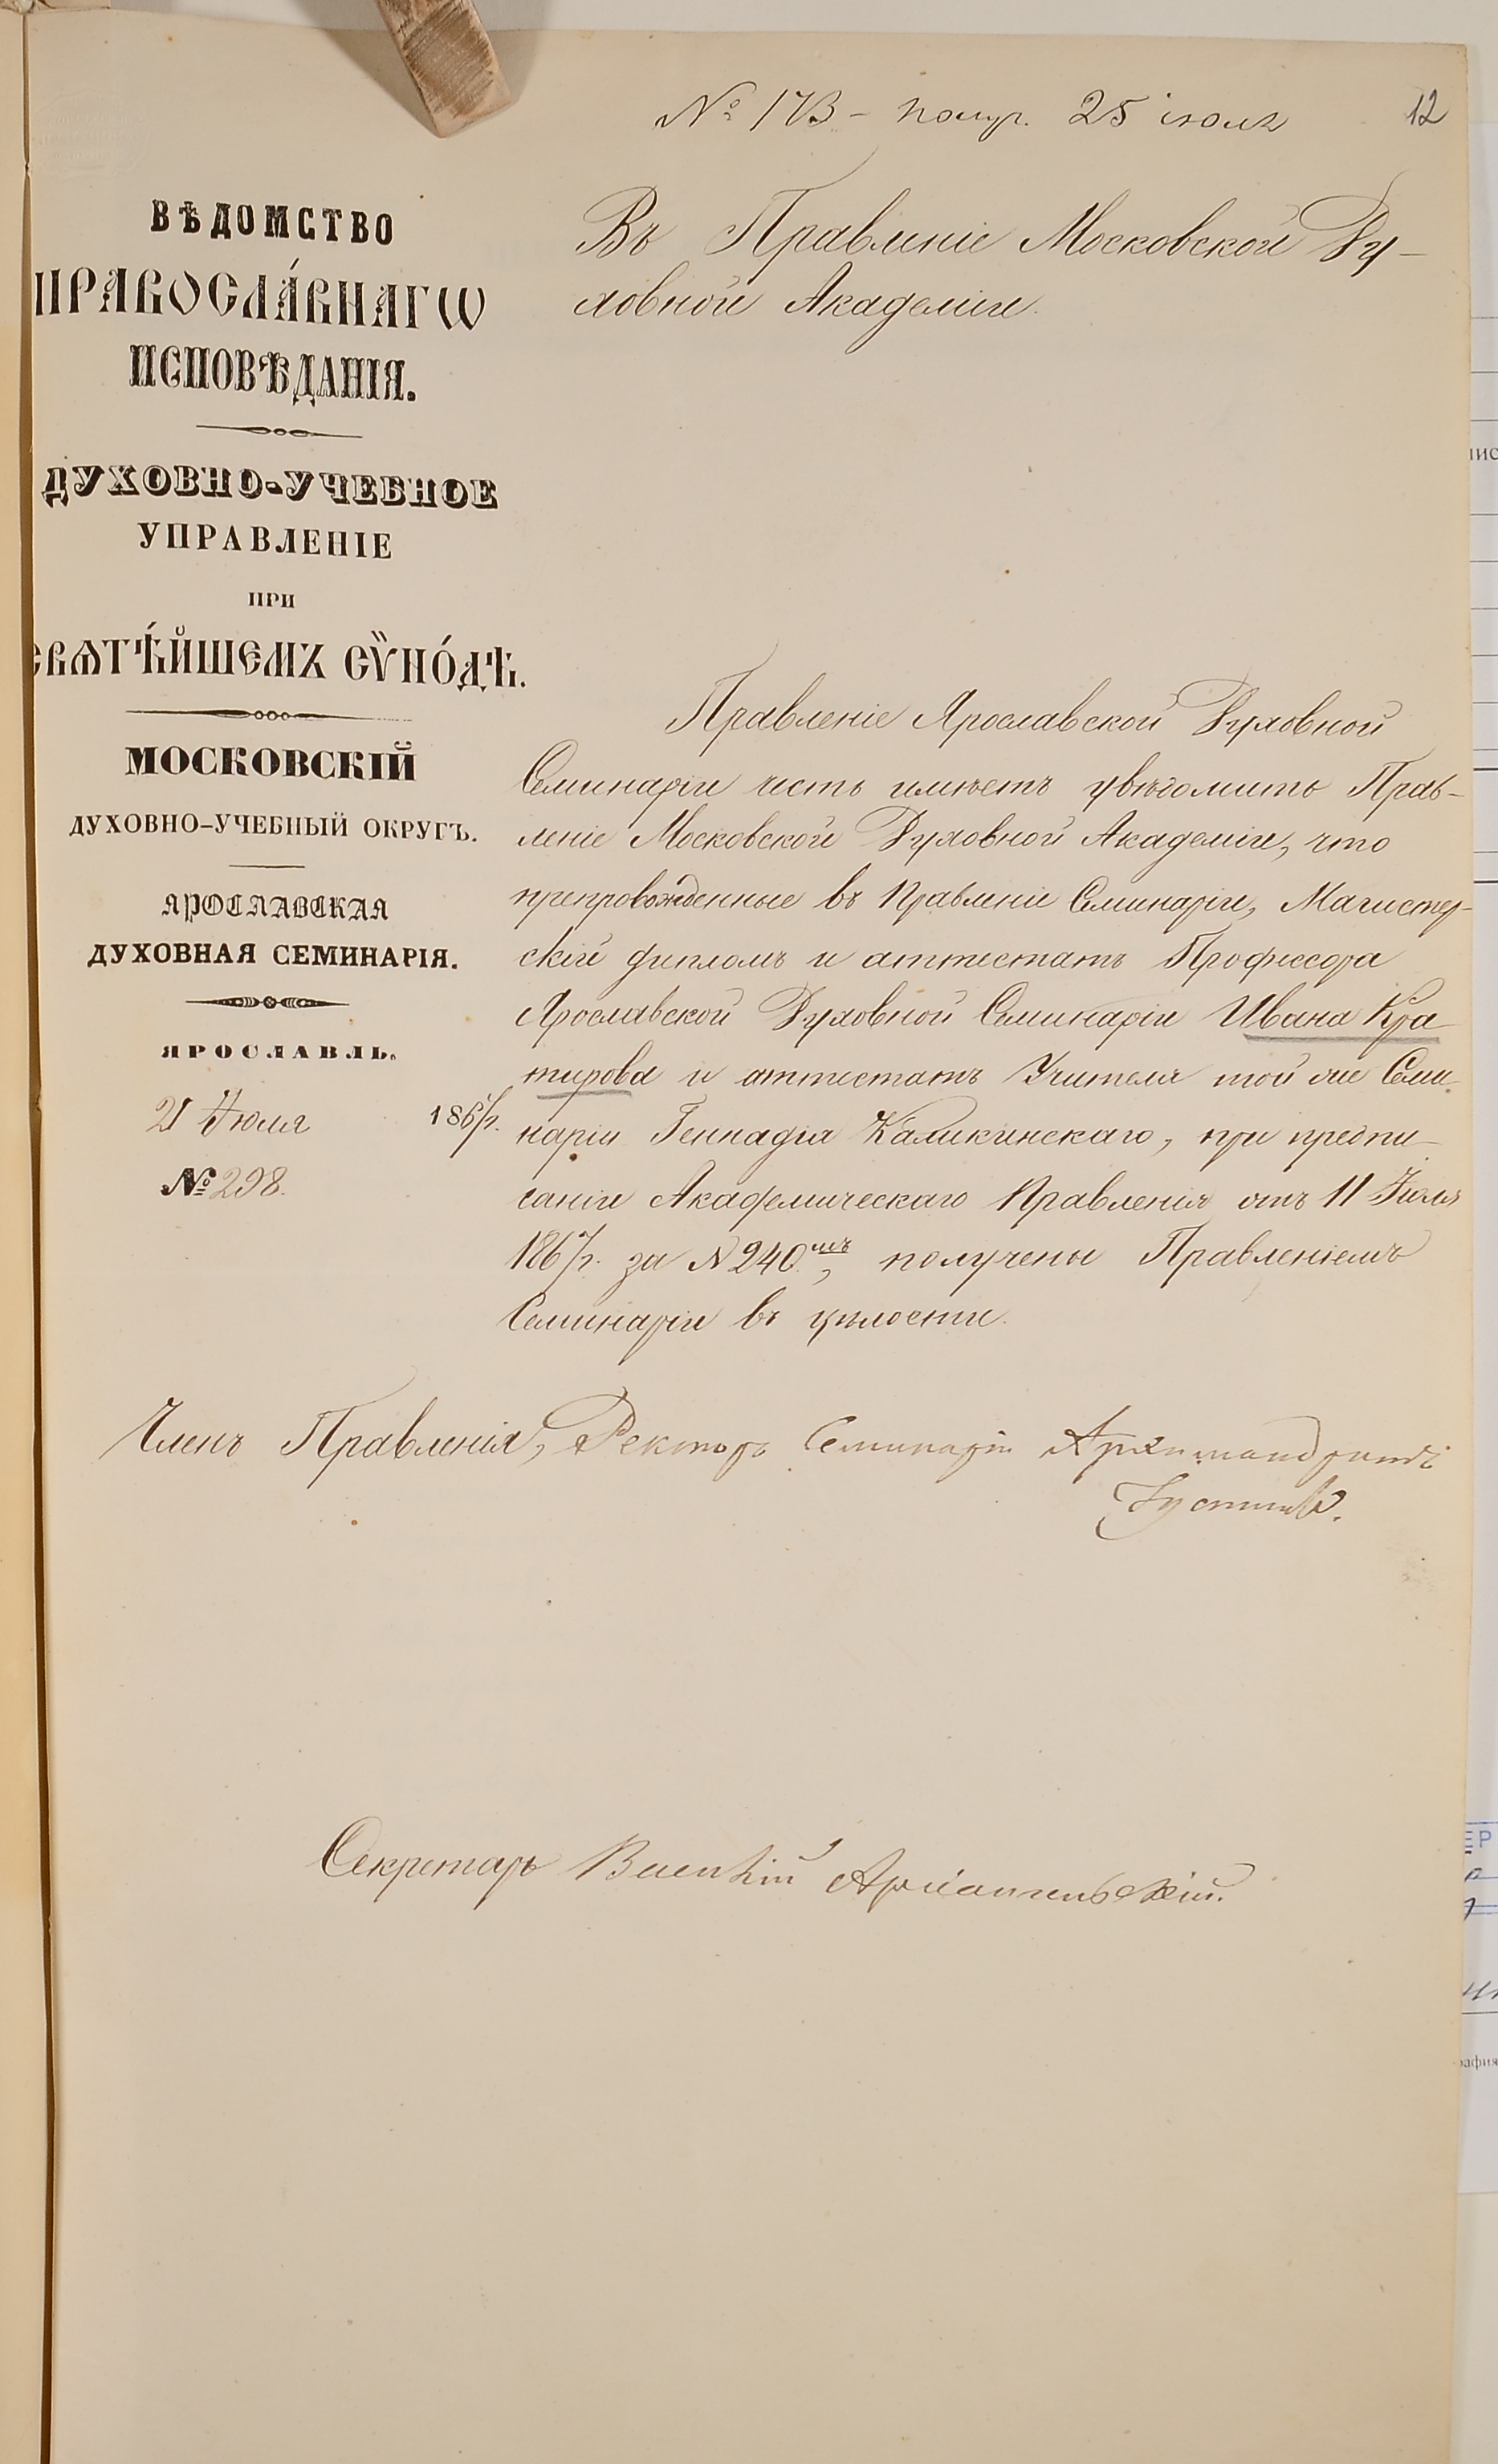 № 173 – получ. 25 июля
12
ВѢДОМСТВО
ПРАВОСЛА́ВНАГѠ
ИСПОВѢДАНІЯ.
ДУХОВНО-УЧЕБНОЕ
УПРАВЛЕНІЕ
ПРИ
СВѦТѢ́ЙШЕМЪ СѶНО́ДѢ.
МОСКОВСКІЙ
ДУХОВНО-УЧЕБНЫЙ ОКРУГЪ.
ЯРОСЛАВСКАЯ
ДУХОВНАЯ СЕМИНАРІЯ.
ЯРОСЛАВЛЬ.
21 Іюля 1867 г.
№ 298.
Въ Правленіе Московской Ду-
ховной Академіи.
Правленіе Ярославской Духовной
Семинаріи честь имѣетъ увѣдомить Прав-
леніе Московской Духовной Академіи, что
препровожденные въ Правленіе Семинаріи, Магистер-
скій дипломъ и аттестатъ Профессора
Ярославской Духовной Семинаріи Ивана Кра
тирова и аттестатъ Учителя той же Семи-
наріи Геннадія Каликинскаго, при предпи-
саніи Академическаго Правленія отъ 11 Іюля
1867 г. за № 240мъ, получены Правленіемъ
Семинаріи въ цѣлости.
Членъ Правленія, Ректоръ Семинаріи Архимандритъ
Іустинъ.
Секретарь Василій Архангельскій.